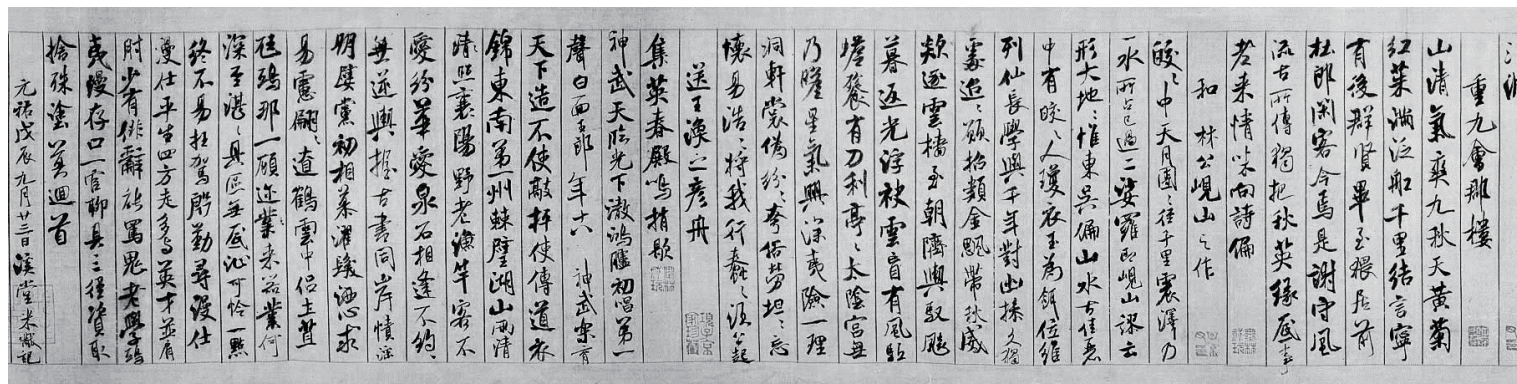 江波
重九會郡樓
山清氣爽九秋天黃菊
紅茱滿泛船千里結言寧
有後群賢畢至猥居前
杜郎閑客今焉是謝守風
流古所傳獨把秋英緣底事
老來情味向詩偏
和林公峴山之作
皎〻中天月團〻徑千里震澤乃
一水所占已過二娑羅即峴山謬云
形大地〻惟東吳偏山水古佳麗
中有皎〻人瓊衣玉為餌位維
列仙長學與千年對幽操久獨
處迢〻願招類金颸帶秋威
欻逐雲檣至朝隮輿馭飆
暮返光浮袂雲盲有風馭
蟾餮有刀利亭〻太陰宮無
乃瞻星氣興深夷險一理
洞軒裳偽紛〻夸俗勞坦〻忘
懷易浩〻將我行蠢〻須公起
送王渙之彥舟
集英春殿鳴捎歇
神武天臨光下澈鴻臚初唱第一
聲白面玉郎年十八神武樂育
天下造不使敲枰使傳道衣
錦東南第一州棘璧湖山兩清
照襄陽野老漁竿客不
愛紛華愛泉石相逢不約約
無逆輿握古書同岸幘淫
朋嬖黨初相慕濯髮洒心求
易慮翩〻遼鶴雲中侶土苴
尪鴟那一顧邇來器業何
深至湛〻具區無底沚可憐一點
終不易枉駕殷勤尋漫仕
漫仕平生四方走多與英才並肩
肘少有俳辭能罵鬼老學鴟
夷漫存口一官聊具三徑資取
捨殊塗莫迴首
元祐戊辰九月廿三日溪堂米黻記